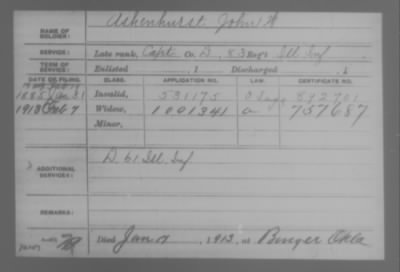 NAME OF SOLDIER: Ashenhurst John
SERVICE: Late rank, Capt Co. D, 83 Reg't Ill Inf
TERM OF SERVICE: Enlisted , 1 Discharged , 1
DATE OF FILING. CLASS. APPLICATION NO. LAW. CERTIFICATE NO.
1885 Jan 31 Invalid, 531175 842701
1913 Feb 7 Widow, 1001341 757687
Minor,
ADDITIONAL SERVICES: D. 61 Ill. Inf
REMARKS:
Died Jan , 1913, at Binger Okla